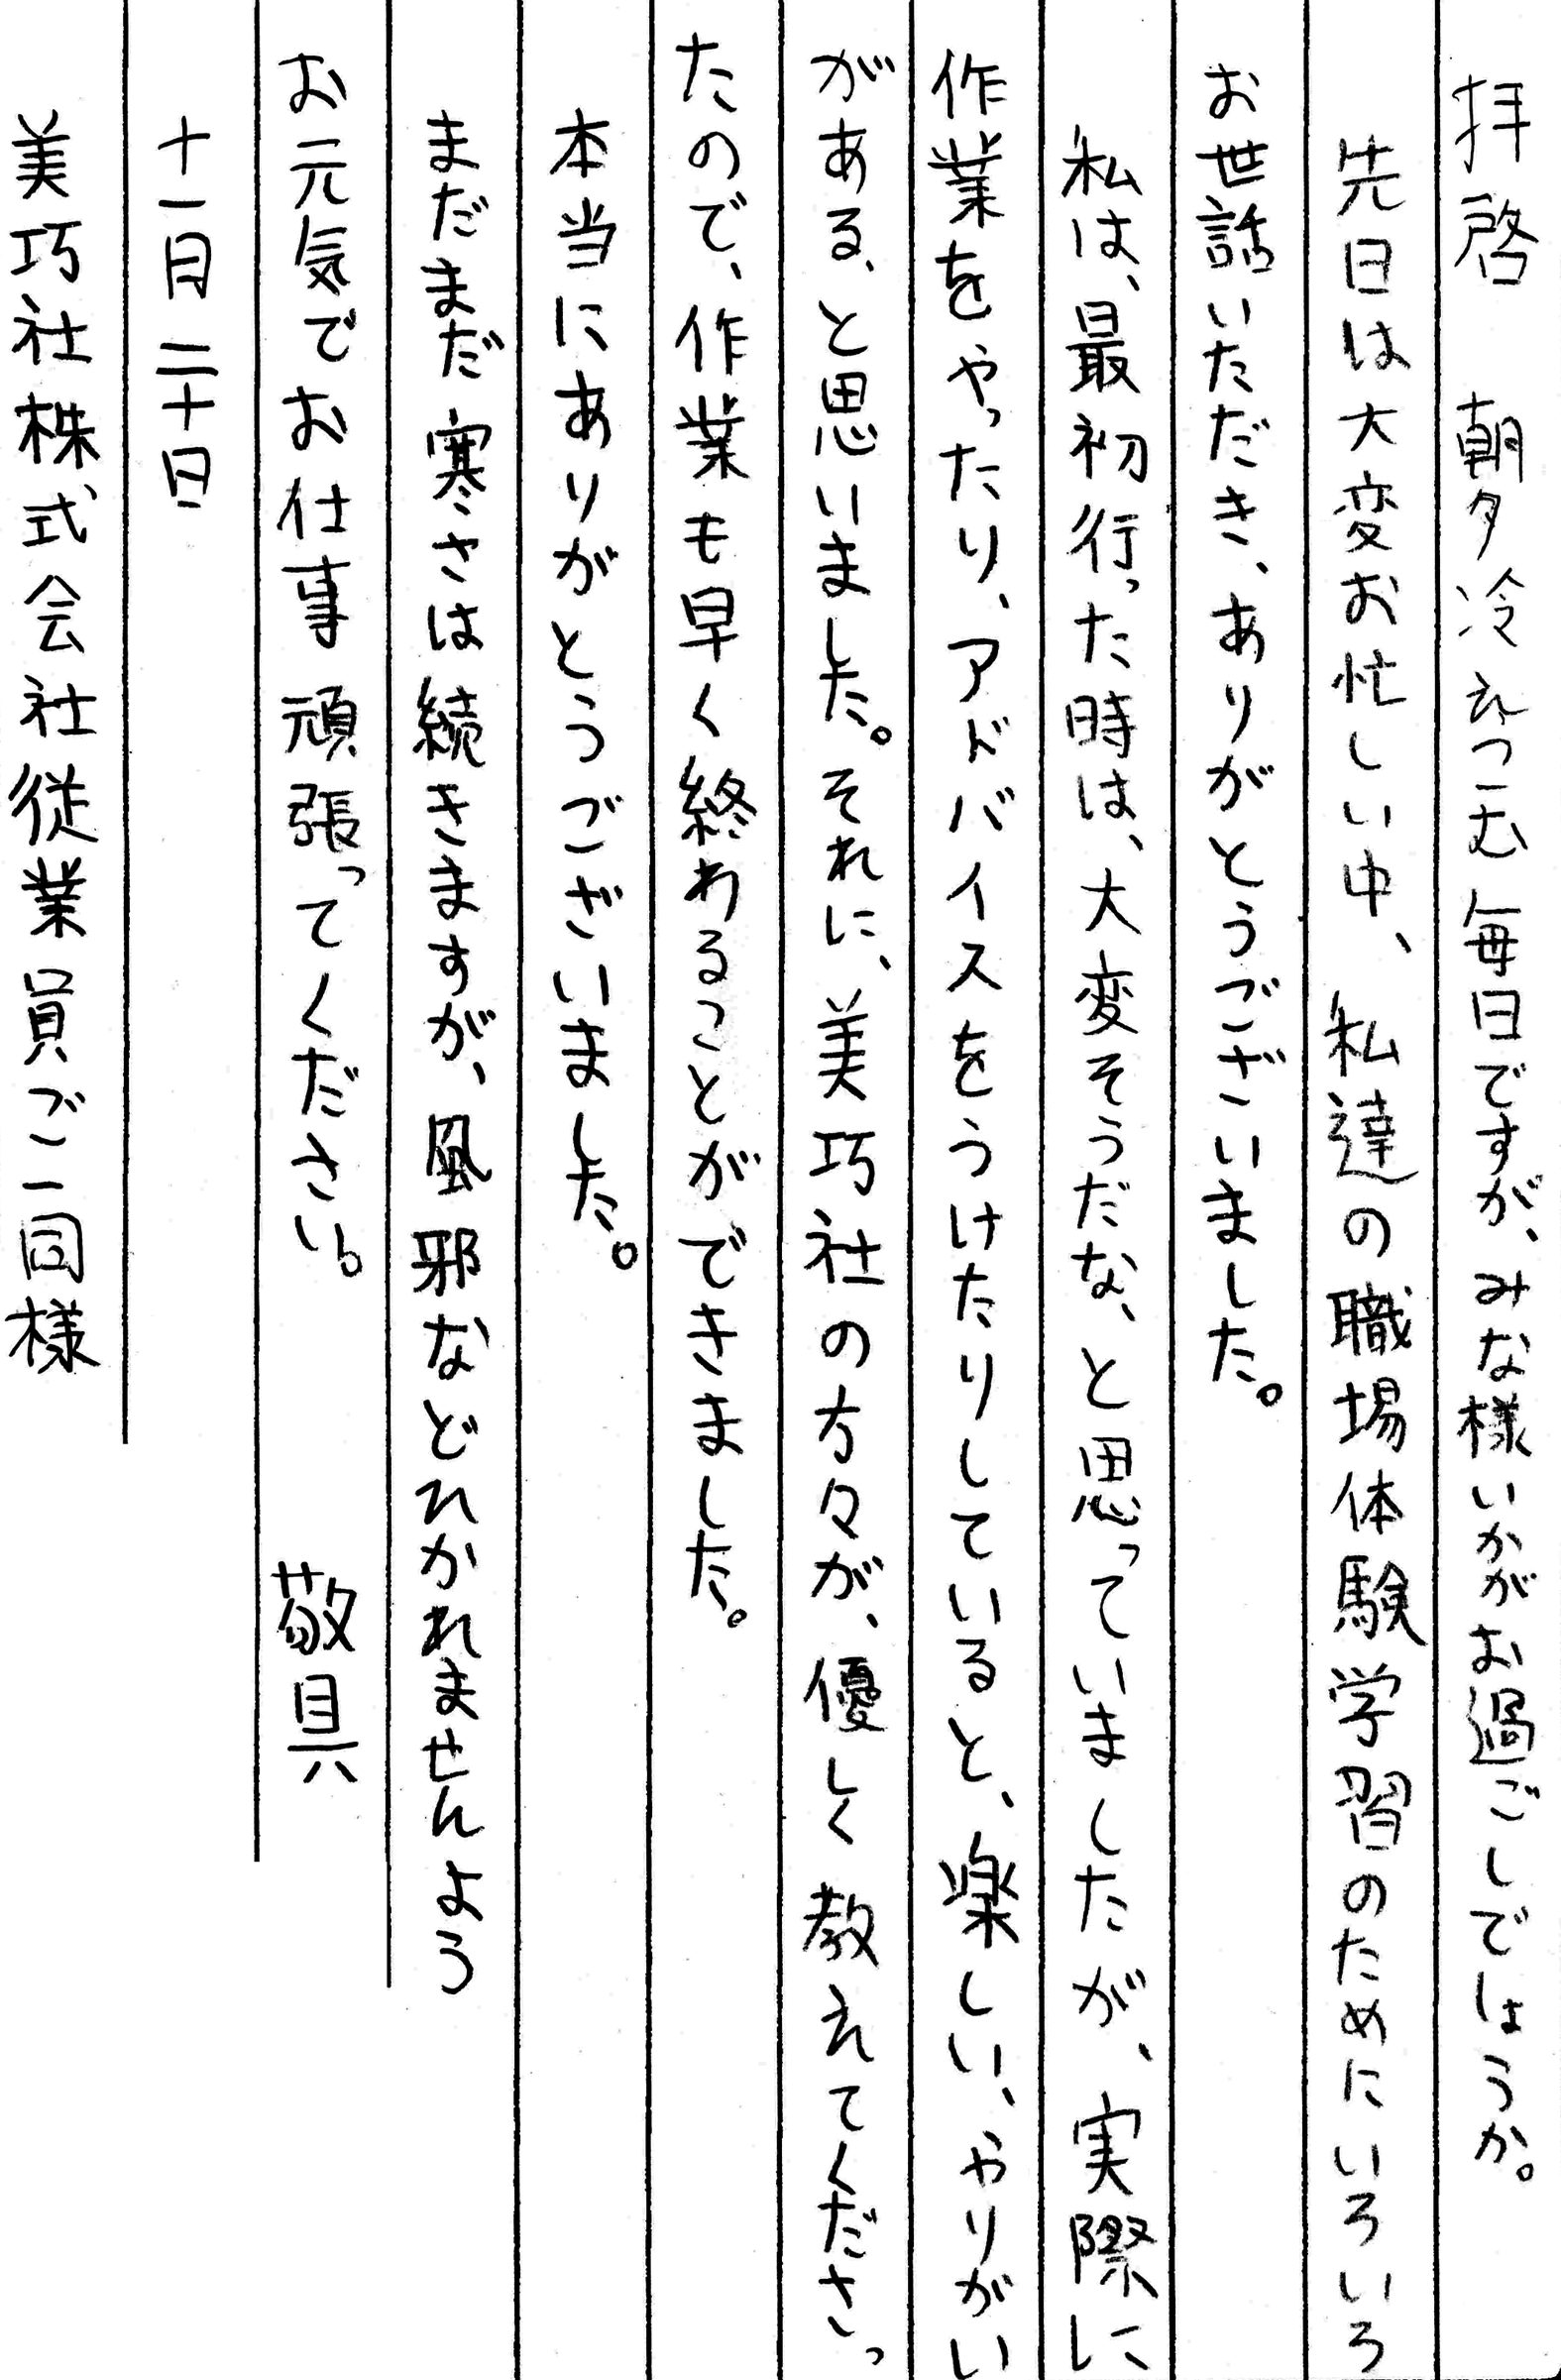 拝啓　朝夕冷えこむ毎日ですが、みな様いかがお過ごしではうか。
先日は大変お忙しい中、私達の職場体験学習のためにいろいろ
お世話いただき、ありがとうございました。
私は、最初行った時は、大変そうだな、と思っていましたが、実際に
作業をやったり、アドバイスをうけたりしていると、楽しい、やりがい
がある、と思いました。それに、美巧社の方々が、優しく教えてくださっ
たので、作業も早く終わることができました。
本当にありがとうございました。
まだまだ寒さは続きますが、風邪などひかれませんよう
お元気でお仕事頑張ってください。　敬具
十一月二十日
美巧社株式会社従業員ご一同様